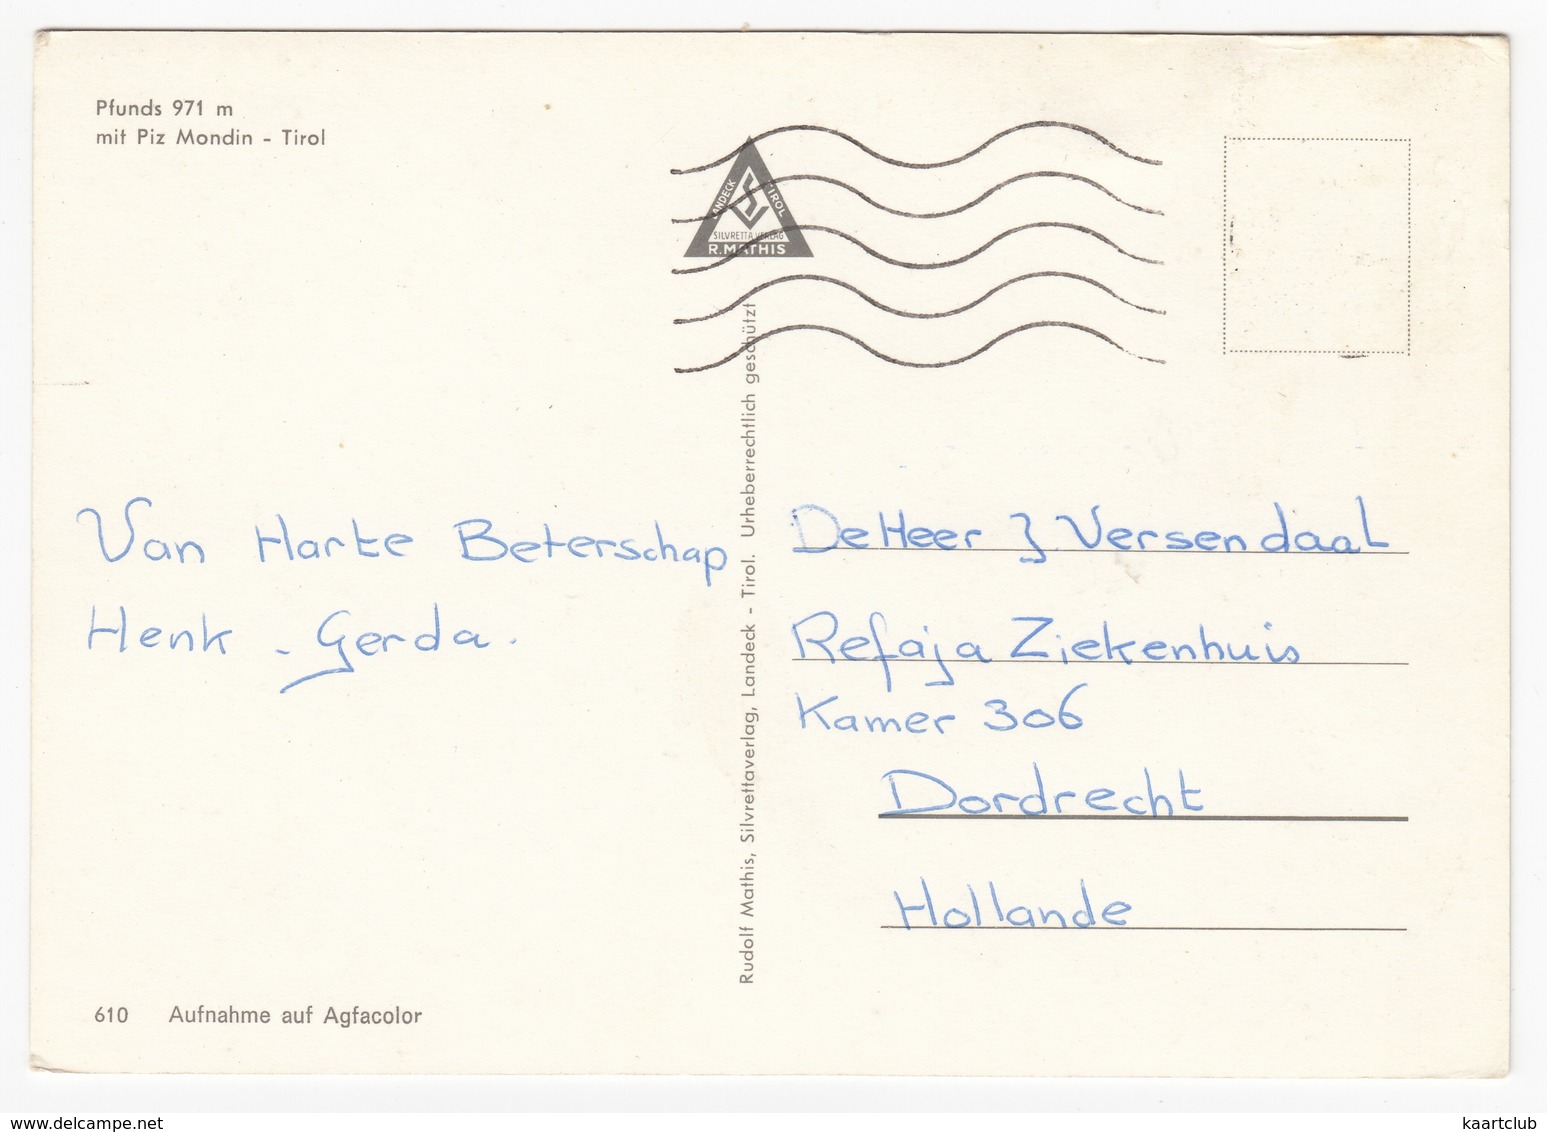 Pfunds 971 m
mit Piz Mondin - Tirol
LANDECK TIROL
SILVRETTA VERLAG
R. MATHIS
Rudolf Mathis, Silvrettaverlag, Landeck - Tirol. Urheberrechtlich geschützt
Van Harte Beterschap
Henk - Gerda.
De Heer J Versendaal
Refaja Ziekenhuis
Kamer 306
Dordrecht
Hollande
610 Aufnahme auf Agfacolor
www.delcampe.net
kaartclub